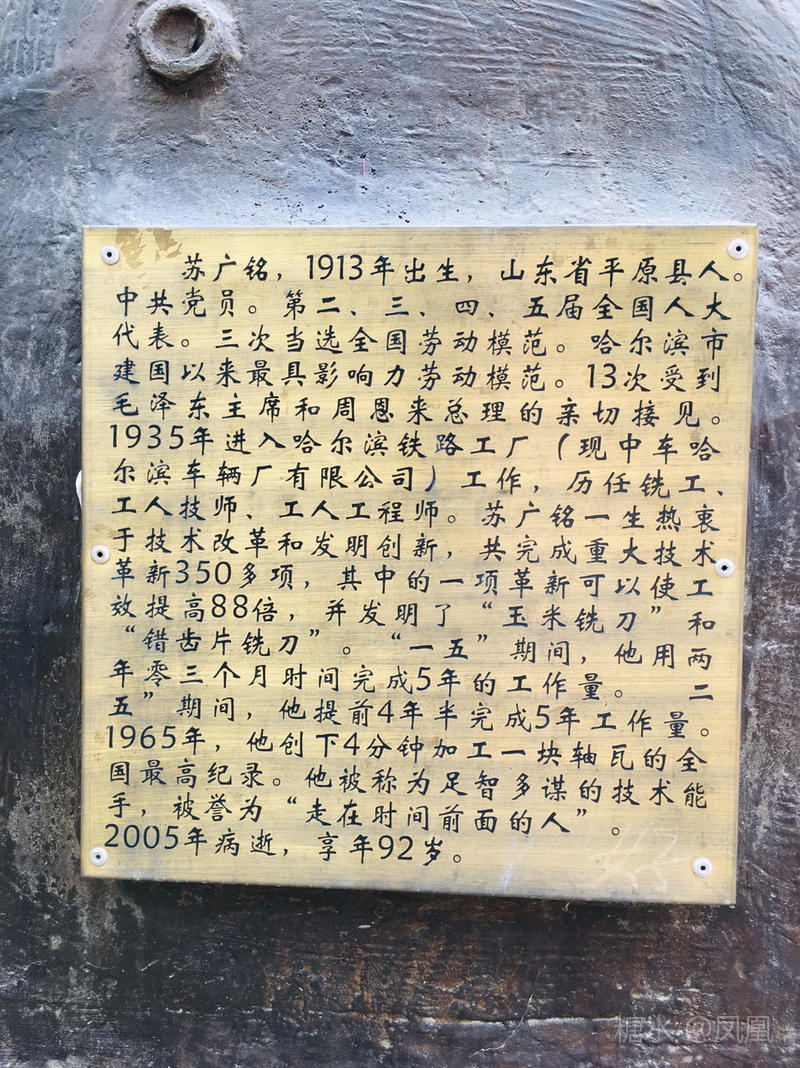 苏广铭，1913年出生，山东省平原县人。
中共党员。第二、三、四、五届全国人大
代表。三次当选全国劳动模范。哈尔滨市
建国以来最具影响力劳动模范。13次受到
毛泽东主席和周恩来总理的亲切接见。
1935年进入哈尔滨铁路工厂（现中车哈
尔滨车辆厂有限公司）工作，历任铣工、
工人技师、工人工程师。苏广铭一生热衷
于技术改革和发明创新，共完成重大技术
革新350多项，其中的一项革新可以使工
效提高88倍，并发明了“玉米铣刀”和
“错齿片铣刀”。“一五”期间，他用两
年零三个月时间完成5年的工作量。 二
五”期间，他提前4年半完成5年工作量。
1965年，他创下4分钟加工一块轴瓦的全
国最高纪录。他被称为足智多谋的技术能
手，被誉为“走在时间前面的人”。
2005年病逝，享年92岁。
糖氷@凤凰